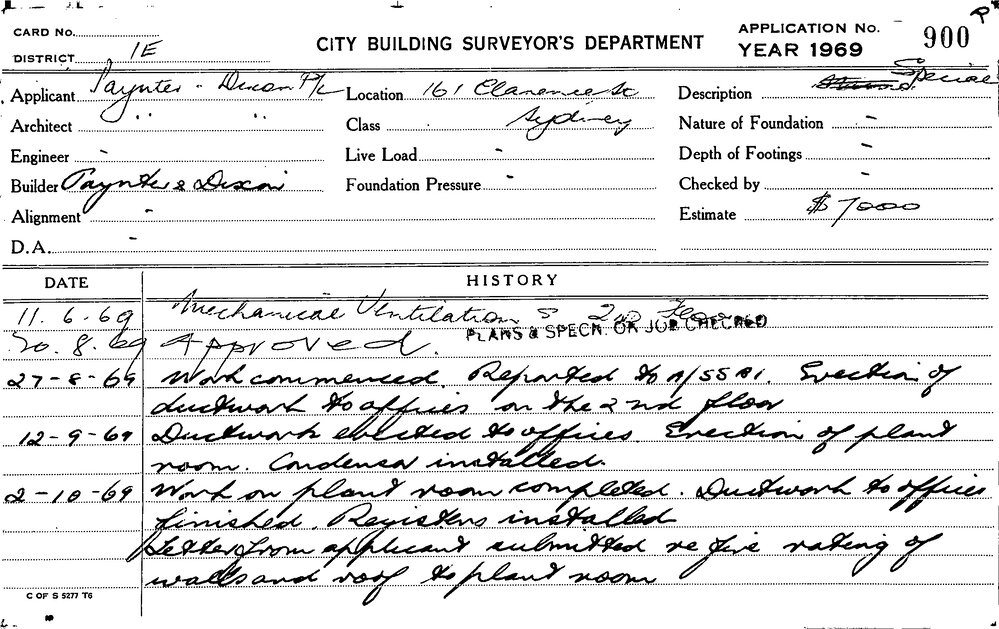 CARD No.
DISTRICT 1E
CITY BUILDING SURVEYOR'S DEPARTMENT
APPLICATION No. 900 P
YEAR 1969
Applicant Paynter - Dixon P/L
Location 161 Clarence St
Sydney
Description Special
Architect " "
Class
Nature of Foundation -
Engineer -
Live Load -
Depth of Footings -
Builder Paynter & Dixon
Foundation Pressure -
Checked by -
Alignment -
Estimate $7000
D.A. -
DATE HISTORY
11.6.69 Mechanical Ventilation 2nd Floor
PLANS & SPECN. ON JOB CHECKED
20.8.69 Approved.
27-8-69 Work commenced. Reported to A/SSBI. Erection of
ductwork to offices on the 2nd floor
12-9-69 Ductwork erected to offices. Erection of plant
room. Condensor installed.
2-10-69 Work on plant room completed. Ductwork to offices
finished. Registers installed
Letter from applicant submitted re fire rating of
walls and roof to plant room
C OF S 5277 T6